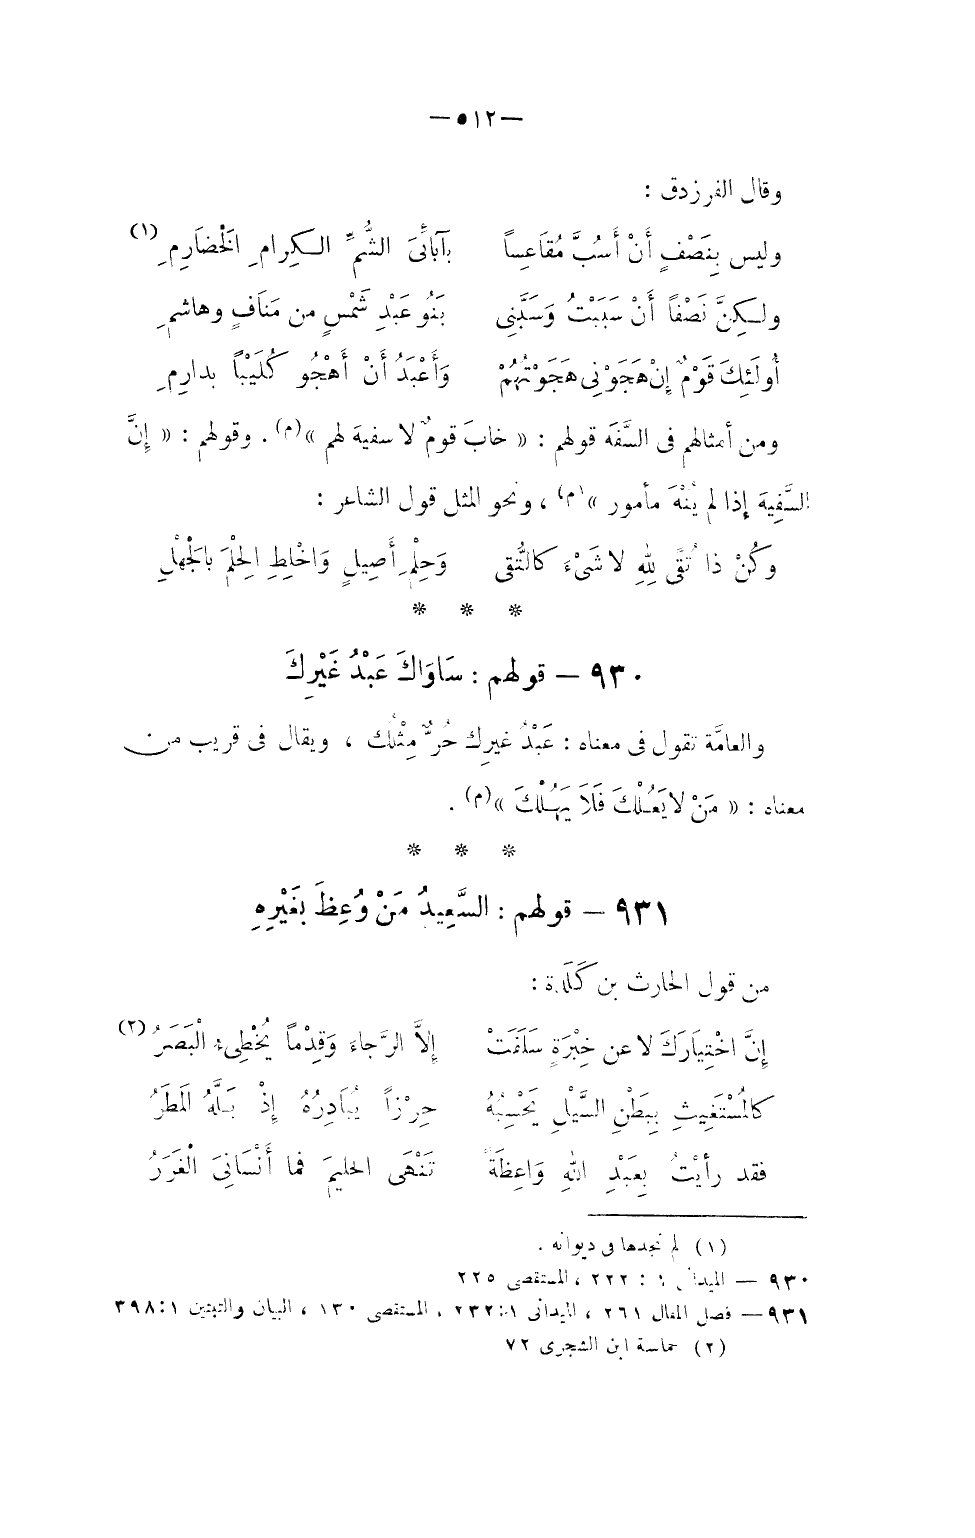 — ٥١٢ —
وقال الفرزدق :
وليس بِنَصْفٍ أَنْ أَسُبَّ مُقَاعِساً بآبائىَ الشُّمِّ الكِرامِ الخَضَارِمِ (١)
ولكِنَّ نَصْفاً أَنْ سَبَبْتُ وَسَبَّنِى بَنُو عَبْدِ شَمْسٍ من مَنَافٍ وهاشمِ
أُولَئِكَ قَوْمٌ إِنْ هَجَوْنِى هَجَوْتُهُمْ وَأَعْبَدُ أَنْ أَهْجُو كُلَيْبًا بدارِمِ
ومن أمثالهم فى السَّفَه قولهم : « خابَ قومٌ لا سفيهَ لهم »(م) . وقولهم : « إِنَّ
السَّفِيهَ إذا لم يُنْهَ مأمور »(م) ، ونحو المثل قول الشاعر :
وَكُنْ ذا تُقًى لِلهِ لا شَىْءَ كالتُّقى وَحِلْمٍ أَصِيلٍ وَاخْلِطِ الحِلْمَ بالْجَهْلِ
* * *
٩٣٠ — قولهم : سَاوَاكَ عَبْدُ غَيْرِكَ
والعامَّة تقول فى معناه : عَبْدُ غيرِك حُرٌّ مِثْلُك ، ويقال فى قريب من
معناه : « مَنْ لا يَعُلْكَ فَلَا يَهُلْكَ »(م) .
* * *
٩٣١ — قولهم : السَّعِيدُ مَنْ وُعِظَ بغَيْرِهِ
من قول الحارث بن كَلَدة :
إِنَّ اخْتِيَارَكَ لا عن خِبْرَةٍ سَلَفَتْ إِلاَّ الرَّجاءَ وَقِدْماً يُخْطِىءُ الْبَصَرُ (٢)
كالمُسْتَغِيثِ بِبَطْنِ السَّيْلِ يَحْسِبُهُ حِرْزاً يُبَادِرُهُ إِذْ بَلَّهُ المَطَرُ
فقد رأَيْتُ بِعَبْدِ اللهِ وَاعِظَةً تَنْهَى الحليمَ فما أَنْسَانِىَ الْغَرَرُ
(١) لم نجدها فى ديوانه .
٩٣٠ — الميدانى ١ : ٢٢٢ ، المستقصى ٢٢٥
٩٣١ — فصل المقال ٢٦١ ، الميدانى ١ : ٢٣٢ ، المستقصى ١٣٠ ، البيان والتبيين ١ : ٣٩٨
(٢) حماسة ابن الشجرى ٧٢